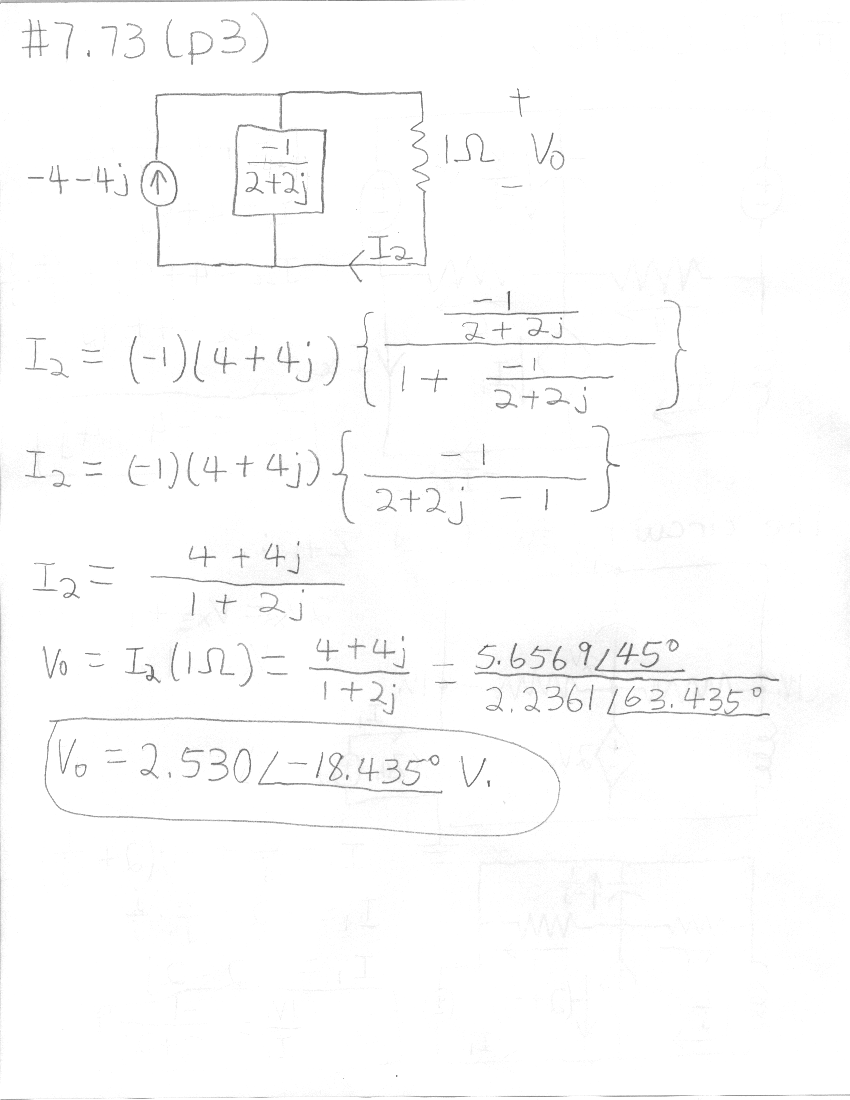 #7.73 (p3)
-4-4j
-1/(2+2j)
1Ω
+
V₀
-
I₂
I₂ = (-1)(4+4j) { (-1/(2+2j)) / (1 + -1/(2+2j)) }
I₂ = (-1)(4+4j) { -1 / (2+2j - 1) }
I₂ = (4+4j) / (1+2j)
V₀ = I₂(1Ω) = (4+4j)/(1+2j) = 5.6569∠45° / 2.2361∠63.435°
V₀ = 2.530∠-18.435° V.